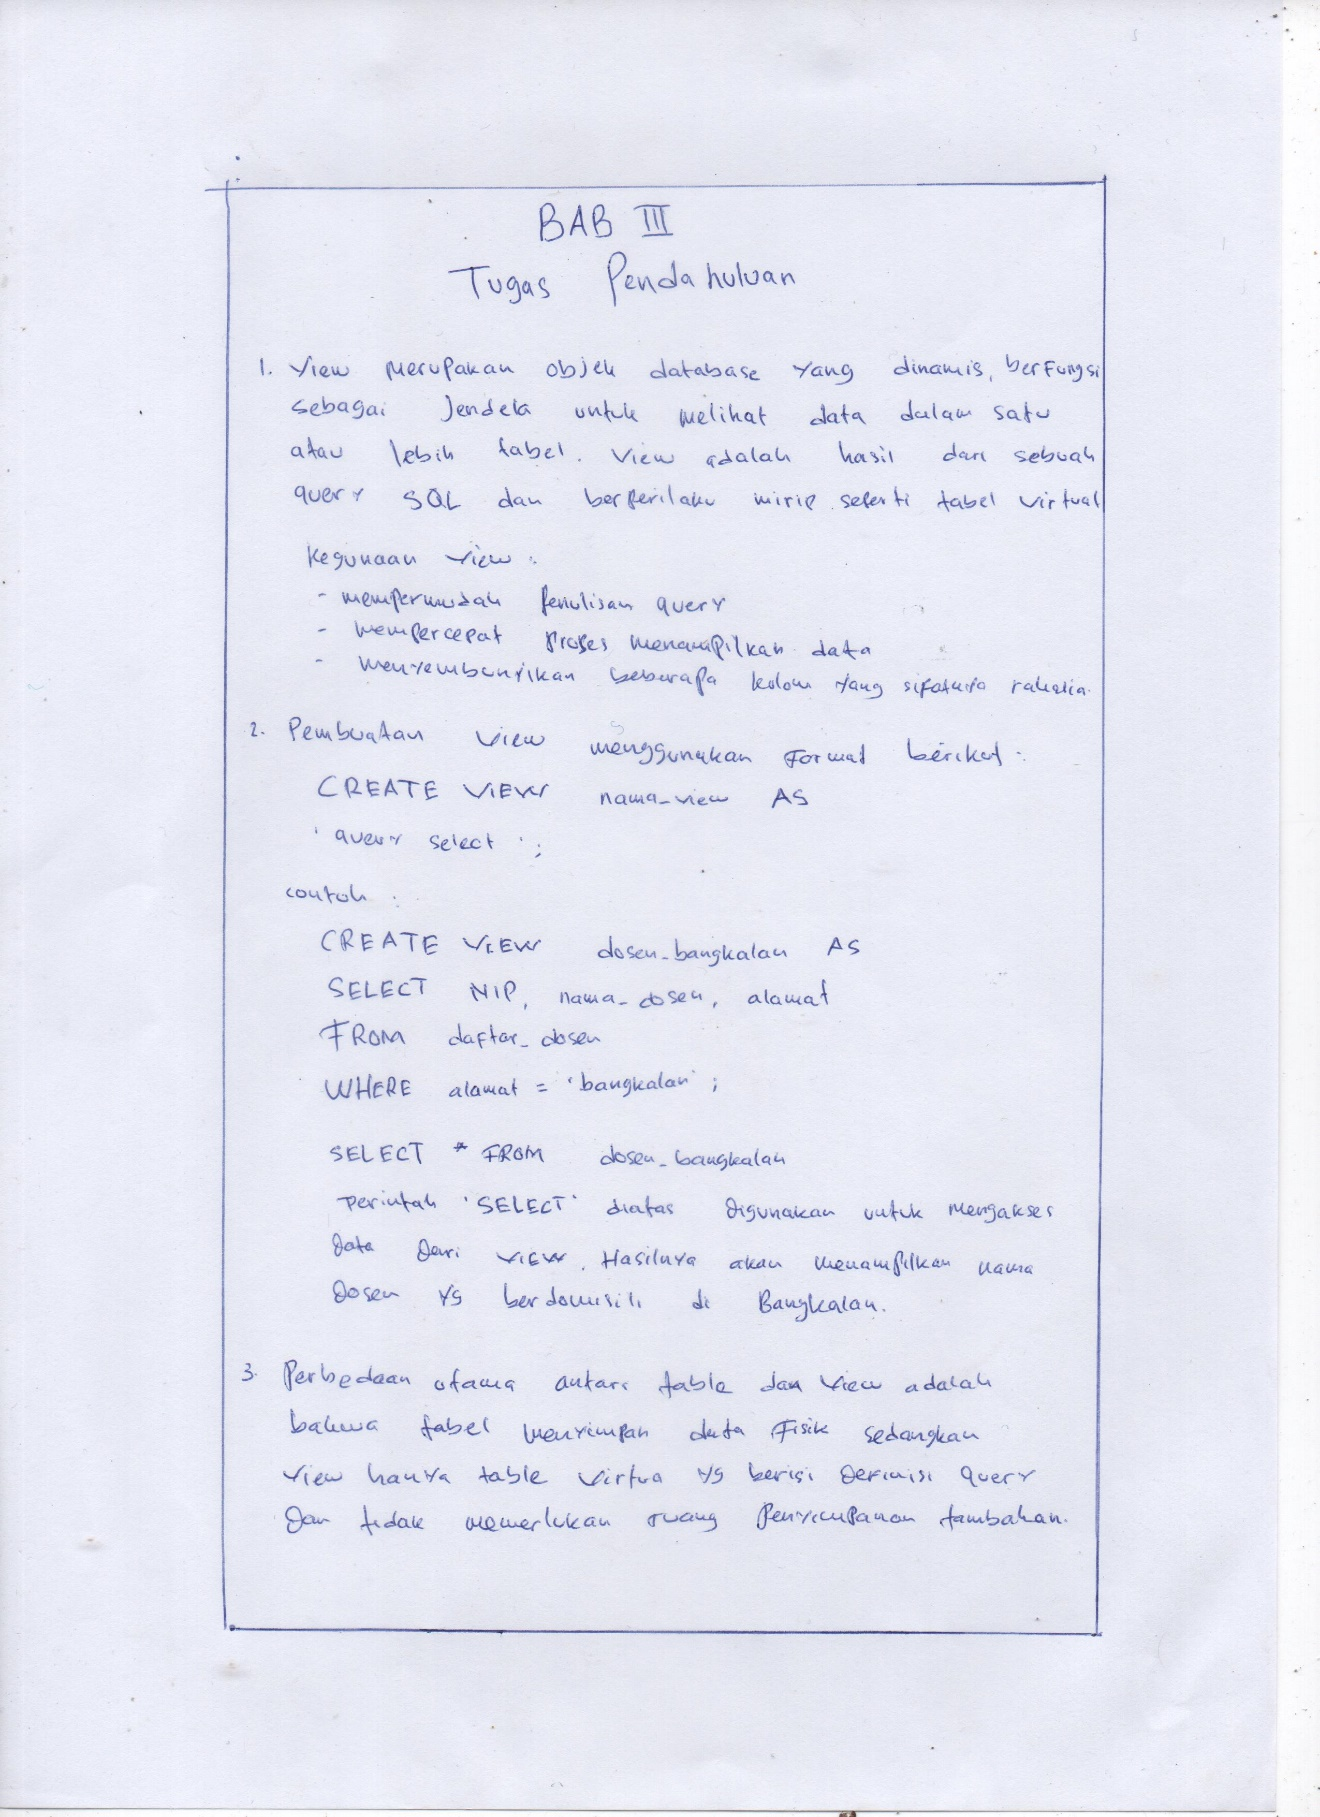 BAB III
Tugas Pendahuluan
1. View merupakan objek database yang dinamis, berfungsi
sebagai jendela untuk melihat data dalam satu
atau lebih tabel. View adalah hasil dari sebuah
query SQL dan berperilaku mirip seperti tabel virtual
Kegunaan view :
- mempermudah penulisan query
- mempercepat proses menampilkan data
- menyembunyikan beberapa kolom yang sifatnya rahasia.
2. Pembuatan view menggunakan format berikut :
CREATE VIEW nama_view AS
'query select ';
contoh :
CREATE VIEW dosen_bangkalan AS
SELECT NIP, nama_dosen, alamat
FROM daftar_dosen
WHERE alamat = 'bangkalan' ;
SELECT * FROM dosen_bangkalan
perintah 'SELECT' diatas digunakan untuk mengakses
data dari VIEW. Hasilnya akan menampilkan nama
dosen yg berdomisili di Bangkalan.
3. Perbedaan utama antara table dan view adalah
bahwa tabel menyimpan data fisik sedangkan
view hanya table virtua yg berisi definisi query
dan tidak memerlukan ruang penyimpanan tambahan.